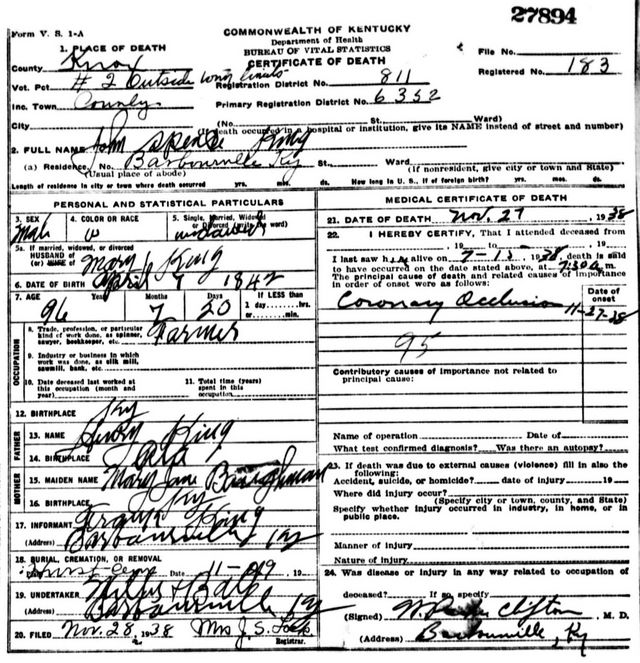 27894
Form V. S. 1-A
COMMONWEALTH OF KENTUCKY
Department of Health
BUREAU OF VITAL STATISTICS
CERTIFICATE OF DEATH
File No.
Registered No. 183
1. PLACE OF DEATH
County Knox
Vot. Pct # 2 Outside Registration District No. 811
Inc. Town County Primary Registration District No. 6352
City (No. St. Ward)
(If death occurred in a hospital or institution, give its NAME instead of street and number)
2. FULL NAME John Spence King
(a) Residence, No. Barbourville Ky St. Ward
(Usual place of abode) (If nonresident, give city or town and State)
Length of residence in city or town where death occurred yrs. mos. ds. How long in U. S., if of foreign birth? yrs. mos. ds.
PERSONAL AND STATISTICAL PARTICULARS
3. SEX Male
4. COLOR OR RACE W
5. Single, Married, Widowed or Divorced (write the word) widowed
5a. If married, widowed, or divorced
HUSBAND of
(or) WIFE of Mary King
6. DATE OF BIRTH April 7 1842
7. AGE 96 Years 7 Months 20 Days If LESS than 1 day hrs. or min.
OCCUPATION
8. Trade, profession, or particular kind of work done, as spinner, sawyer, bookkeeper, etc. Farmer
9. Industry or business in which work was done, as silk mill, sawmill, bank, etc.
10. Date deceased last worked at this occupation (month and year)
11. Total time (years) spent in this occupation
12. BIRTHPLACE Ky
FATHER
13. NAME Henry King
14. BIRTHPLACE
MOTHER
15. MAIDEN NAME Mary Jane Baughman
16. BIRTHPLACE Ky
17. INFORMANT King
(Address) Barbourville Ky
18. BURIAL, CREMATION, OR REMOVAL
Cem Date 11- 19
19. UNDERTAKER
(Address) Barbourville Ky
20. FILED Nov. 28, 1938 Mrs J. S. Registrar.
MEDICAL CERTIFICATE OF DEATH
21. DATE OF DEATH Nov. 27, 1938
22. I HEREBY CERTIFY, That I attended deceased
from , 19 to , 19
I last saw him alive on 7-13, 1938, death is said
to have occurred on the date stated above, at 7:30 a m.
The principal cause of death and related causes of importance in order of onset were as follows:
Date of onset
Coronary Occlusion 11-27-38
95
Contributory causes of importance not related to principal cause:
Name of operation Date of
What test confirmed diagnosis? Was there an autopsy?
23. If death was due to external causes (violence) fill in also the following:
Accident, suicide, or homicide? date of injury 19
Where did injury occur?
(Specify city or town, county, and State)
Specify whether injury occurred in industry, in home, or in public place.
Manner of injury
Nature of injury
24. Was disease or injury in any way related to occupation of
deceased? If so, specify
(Signed) Clifton, M. D.
(Address) Barbourville, Ky